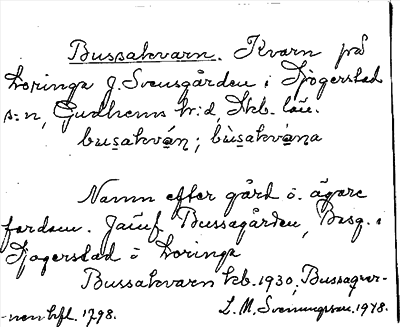 Bussakvarn. Kvarn på
Loringa J. Svensgården i Sjogerstad
s:n, Gudhems hr:d, Skb. län.
busakván; bùsakvána
Namn efter gård o. ägare
fordom. Jämf. Bussagården, Besq. i
Sjogerstad o Loringa
Bussakvarn kb. 1930, Bussaqvar-
-nen hfl. 1798. L. M. Svenungsson. 1978.